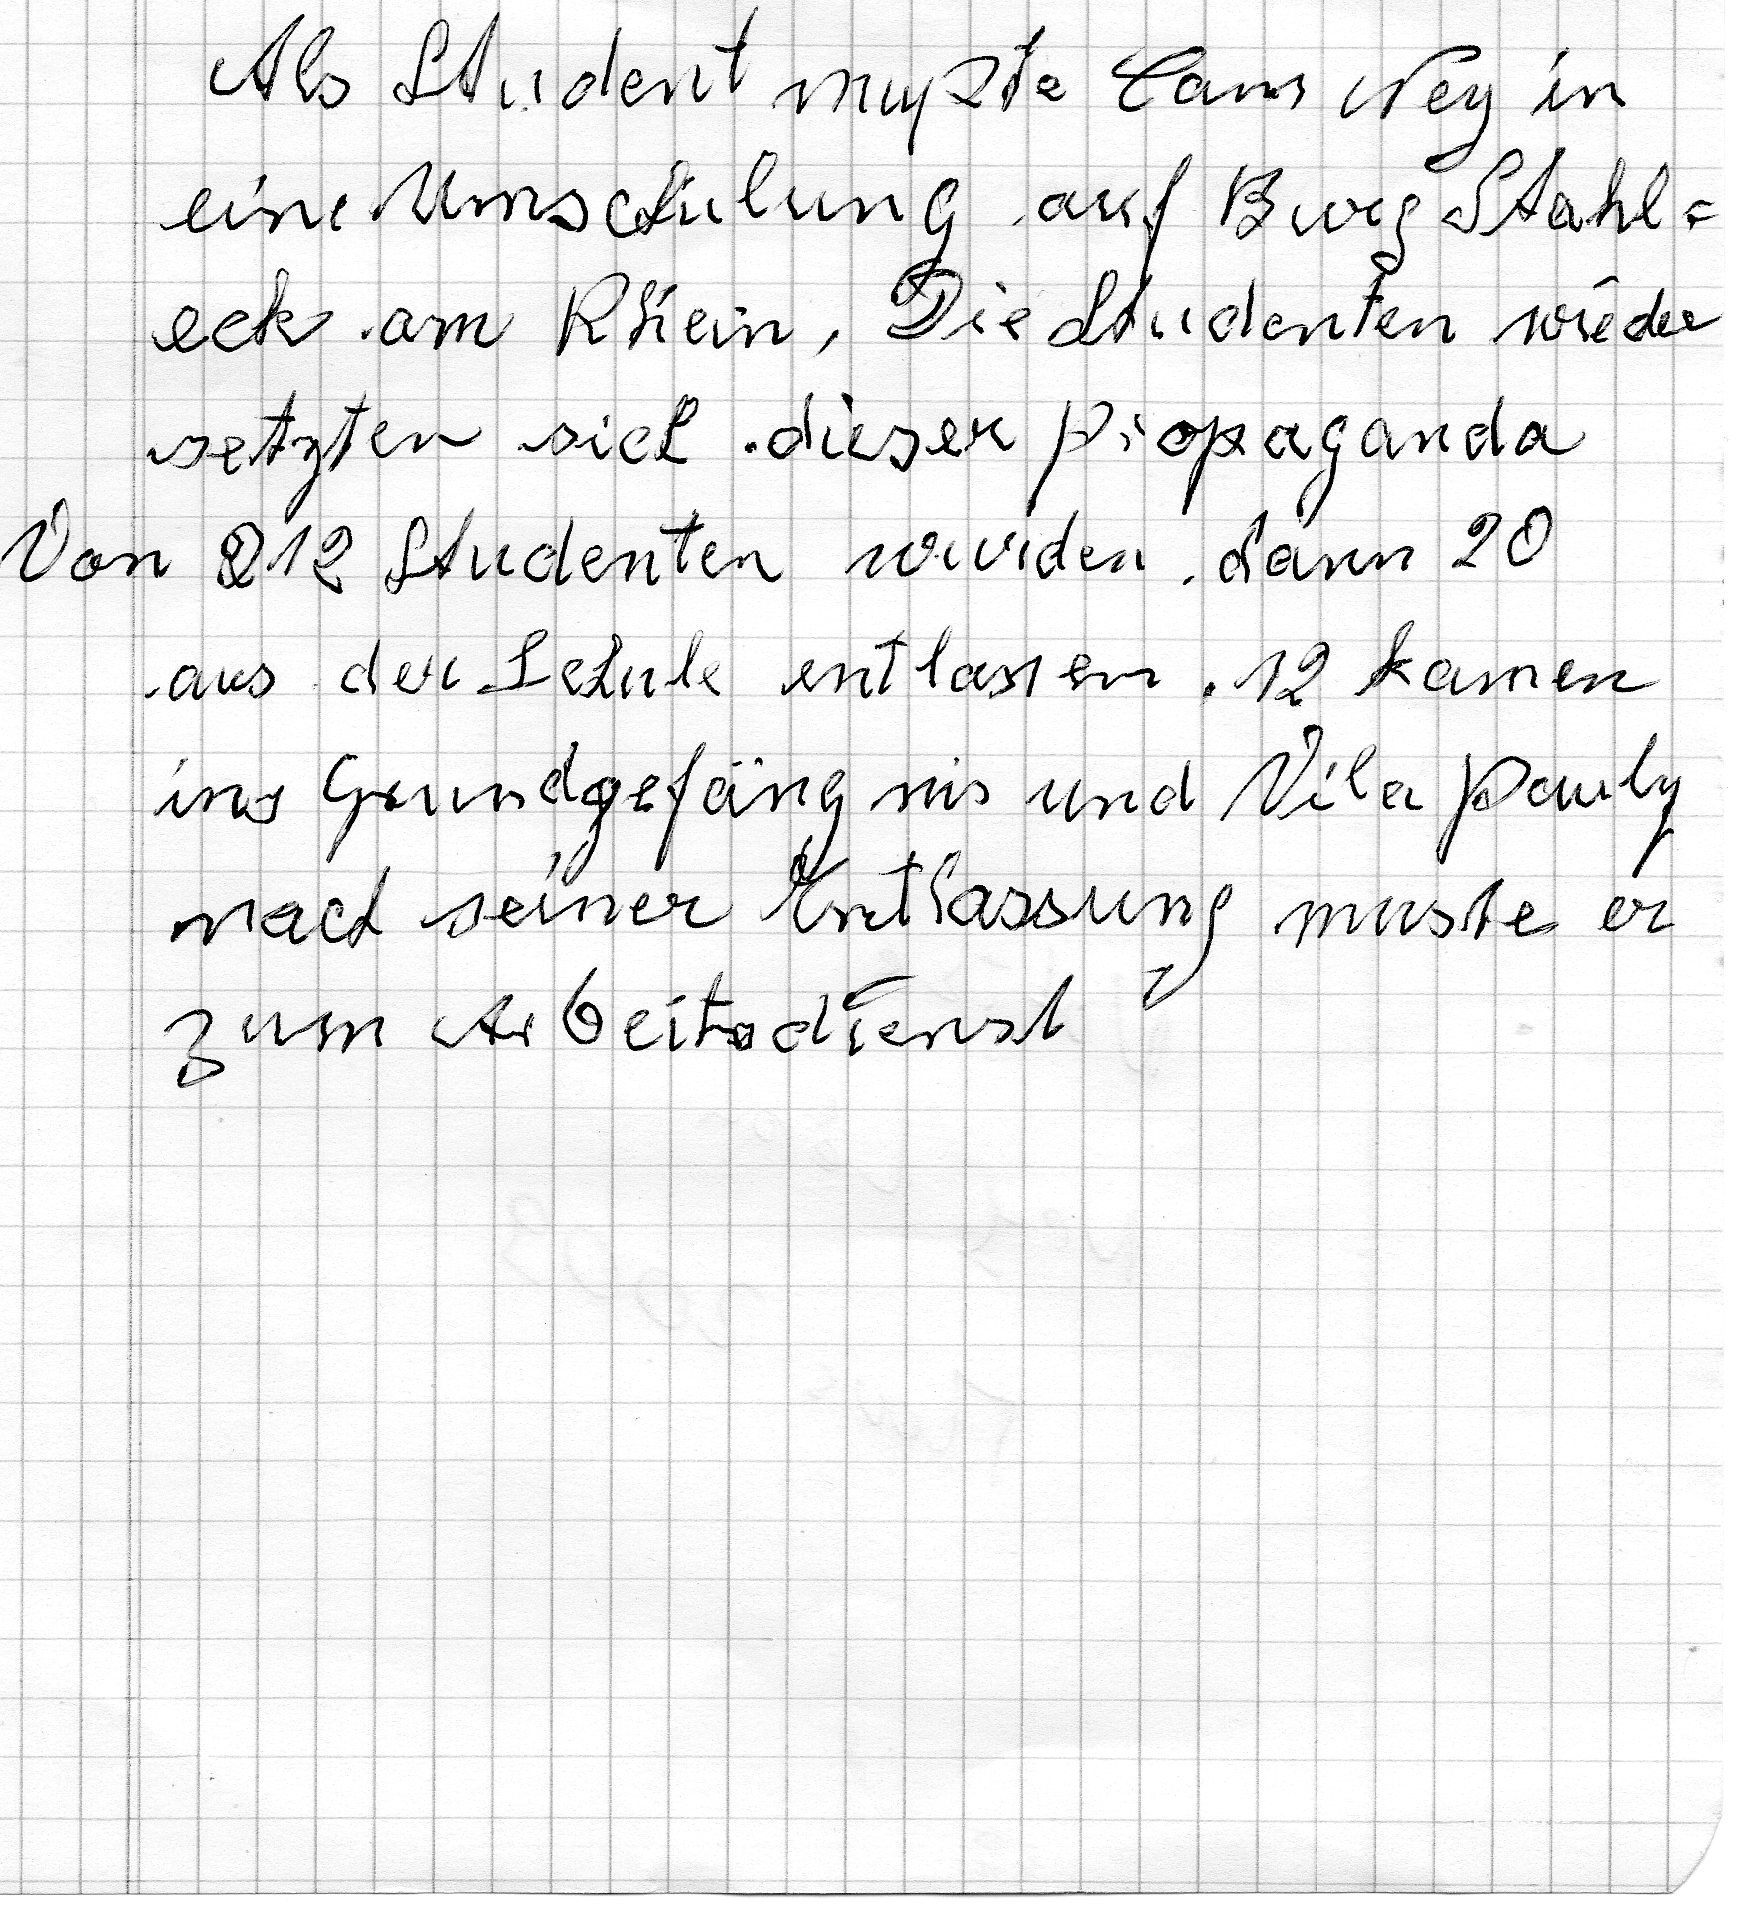 Als Student mußte Cams Ney in
eine Umschulung auf Burg Stahl=
eck am Rhein, Die Studenten wieder
setzten sich dieser Propaganda
Von 212 Studenten wurden dann 20
aus der Schule entlassen. 12 kamen
ins Grundgefängnis und Vila Pauly
nach seiner Entlassung muste er
zum Arbeitsdienst